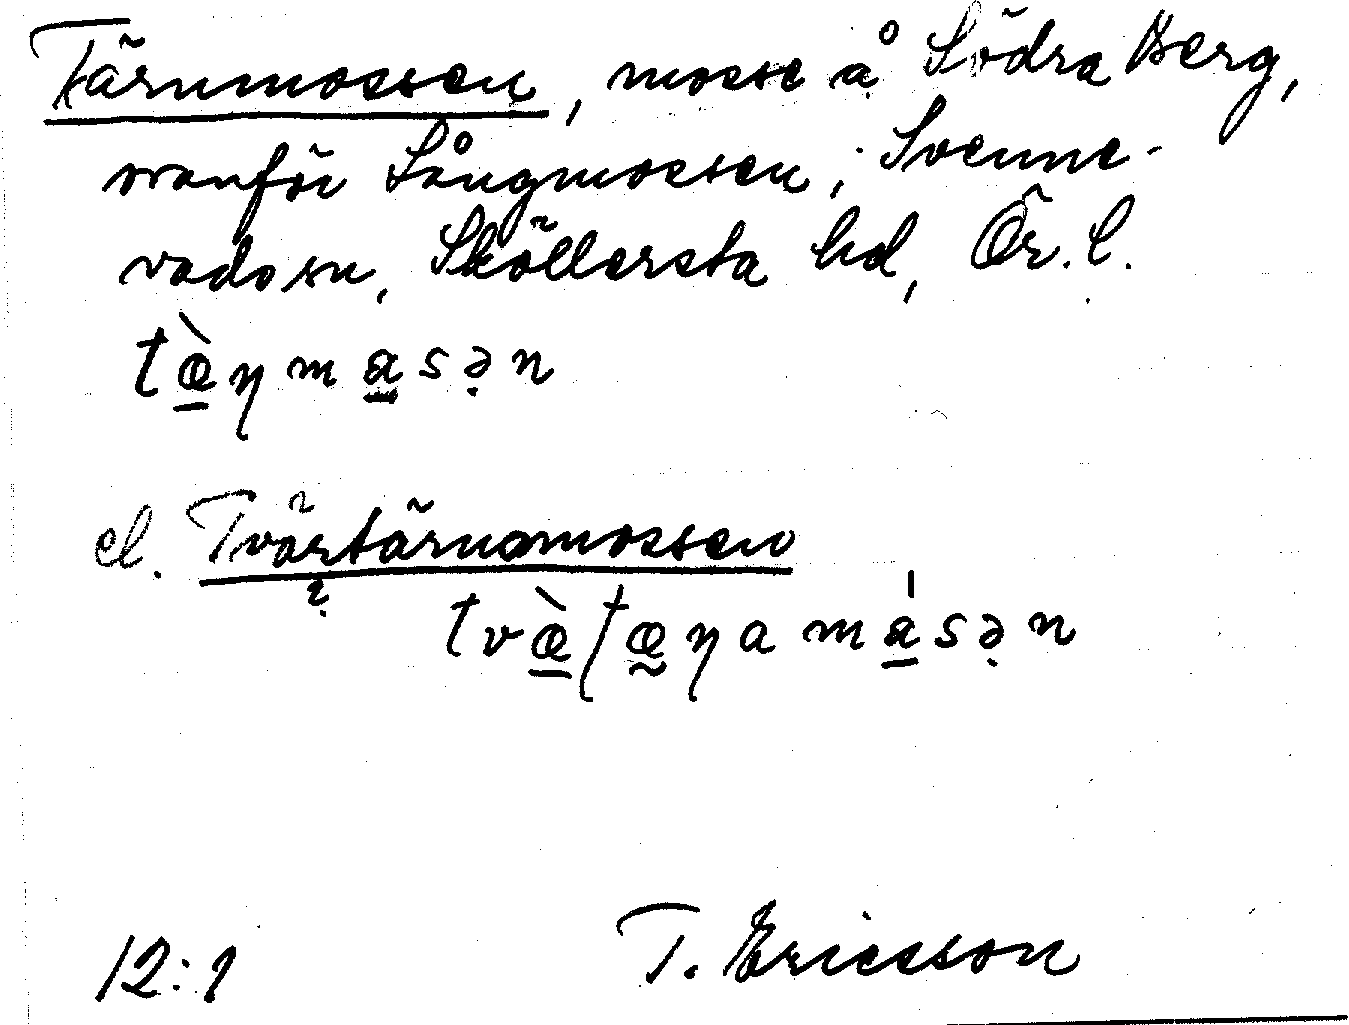 Tärnmossen, mosse å Södra Berg,
ovanför Långmossen, Svenne-
vads sn, Sköllersta hd, Ör. l.
tæ̀ŋmasən
el. Tvärtärnamossen
tvæ̀ʃtæŋamásən
12:1 T. Ericsson